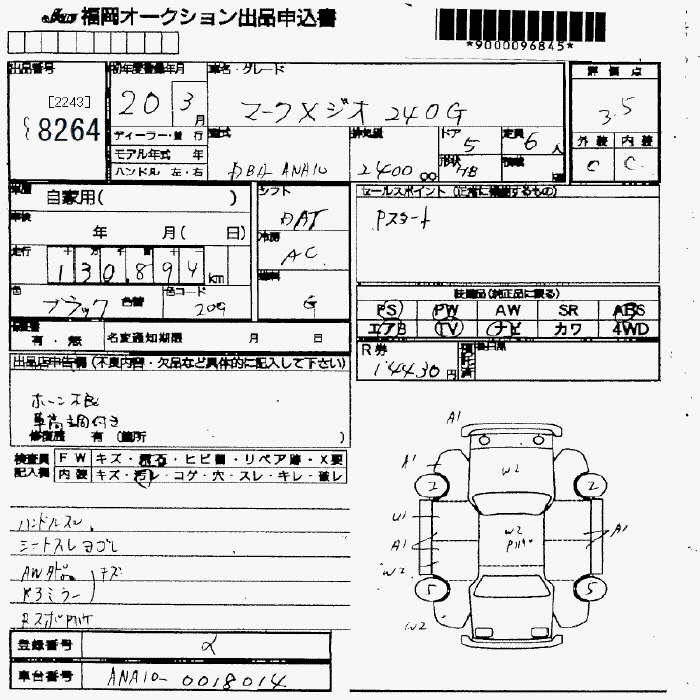 福岡オークション出品申込書
*9000096845*
出品番号
[2243]
8264
初年度登録年月
20 3月
車名・グレード
マークXジオ 240G
評価点
3.5
外装 内装
C C
ディーラー・並行
モデル年式 年
ハンドル 左・右
型式
DBA-ANA10
排気量
2400 cc
ドア
5
形状
HB
定員
6人
積載
車歴
自家用( )
車検
年 月( 日)
走行
130,894km
色
ブラック
色替
色コード
209
シフト
DAT
冷房
AC
燃料
G
セールスポイント (正常に機能するもの)
Pスタート
装備品(純正品に限る)
PS PW AW SR ABS
エアB TV ナビ カワ 4WD
有・無
名変通知期限 月 日
R券
14430円
出品店申告欄 (不良内容・欠品など具体的に記入して下さい)
ホーン不良
車高調付き
修復歴 有 (箇所 )
検査員記入欄
FW キズ・飛石・ヒビ割・リペア跡・X要
内装 キズ・汚レ・コゲ・穴・スレ・キレ・破レ
ハンドルスレ
シートスレヨゴレ
ミラー
キズ
登録番号
車台番号
ANA10-0018014
A1
A1
W2
2
2
U1
A1
W2
W2
A1
5
5
W2